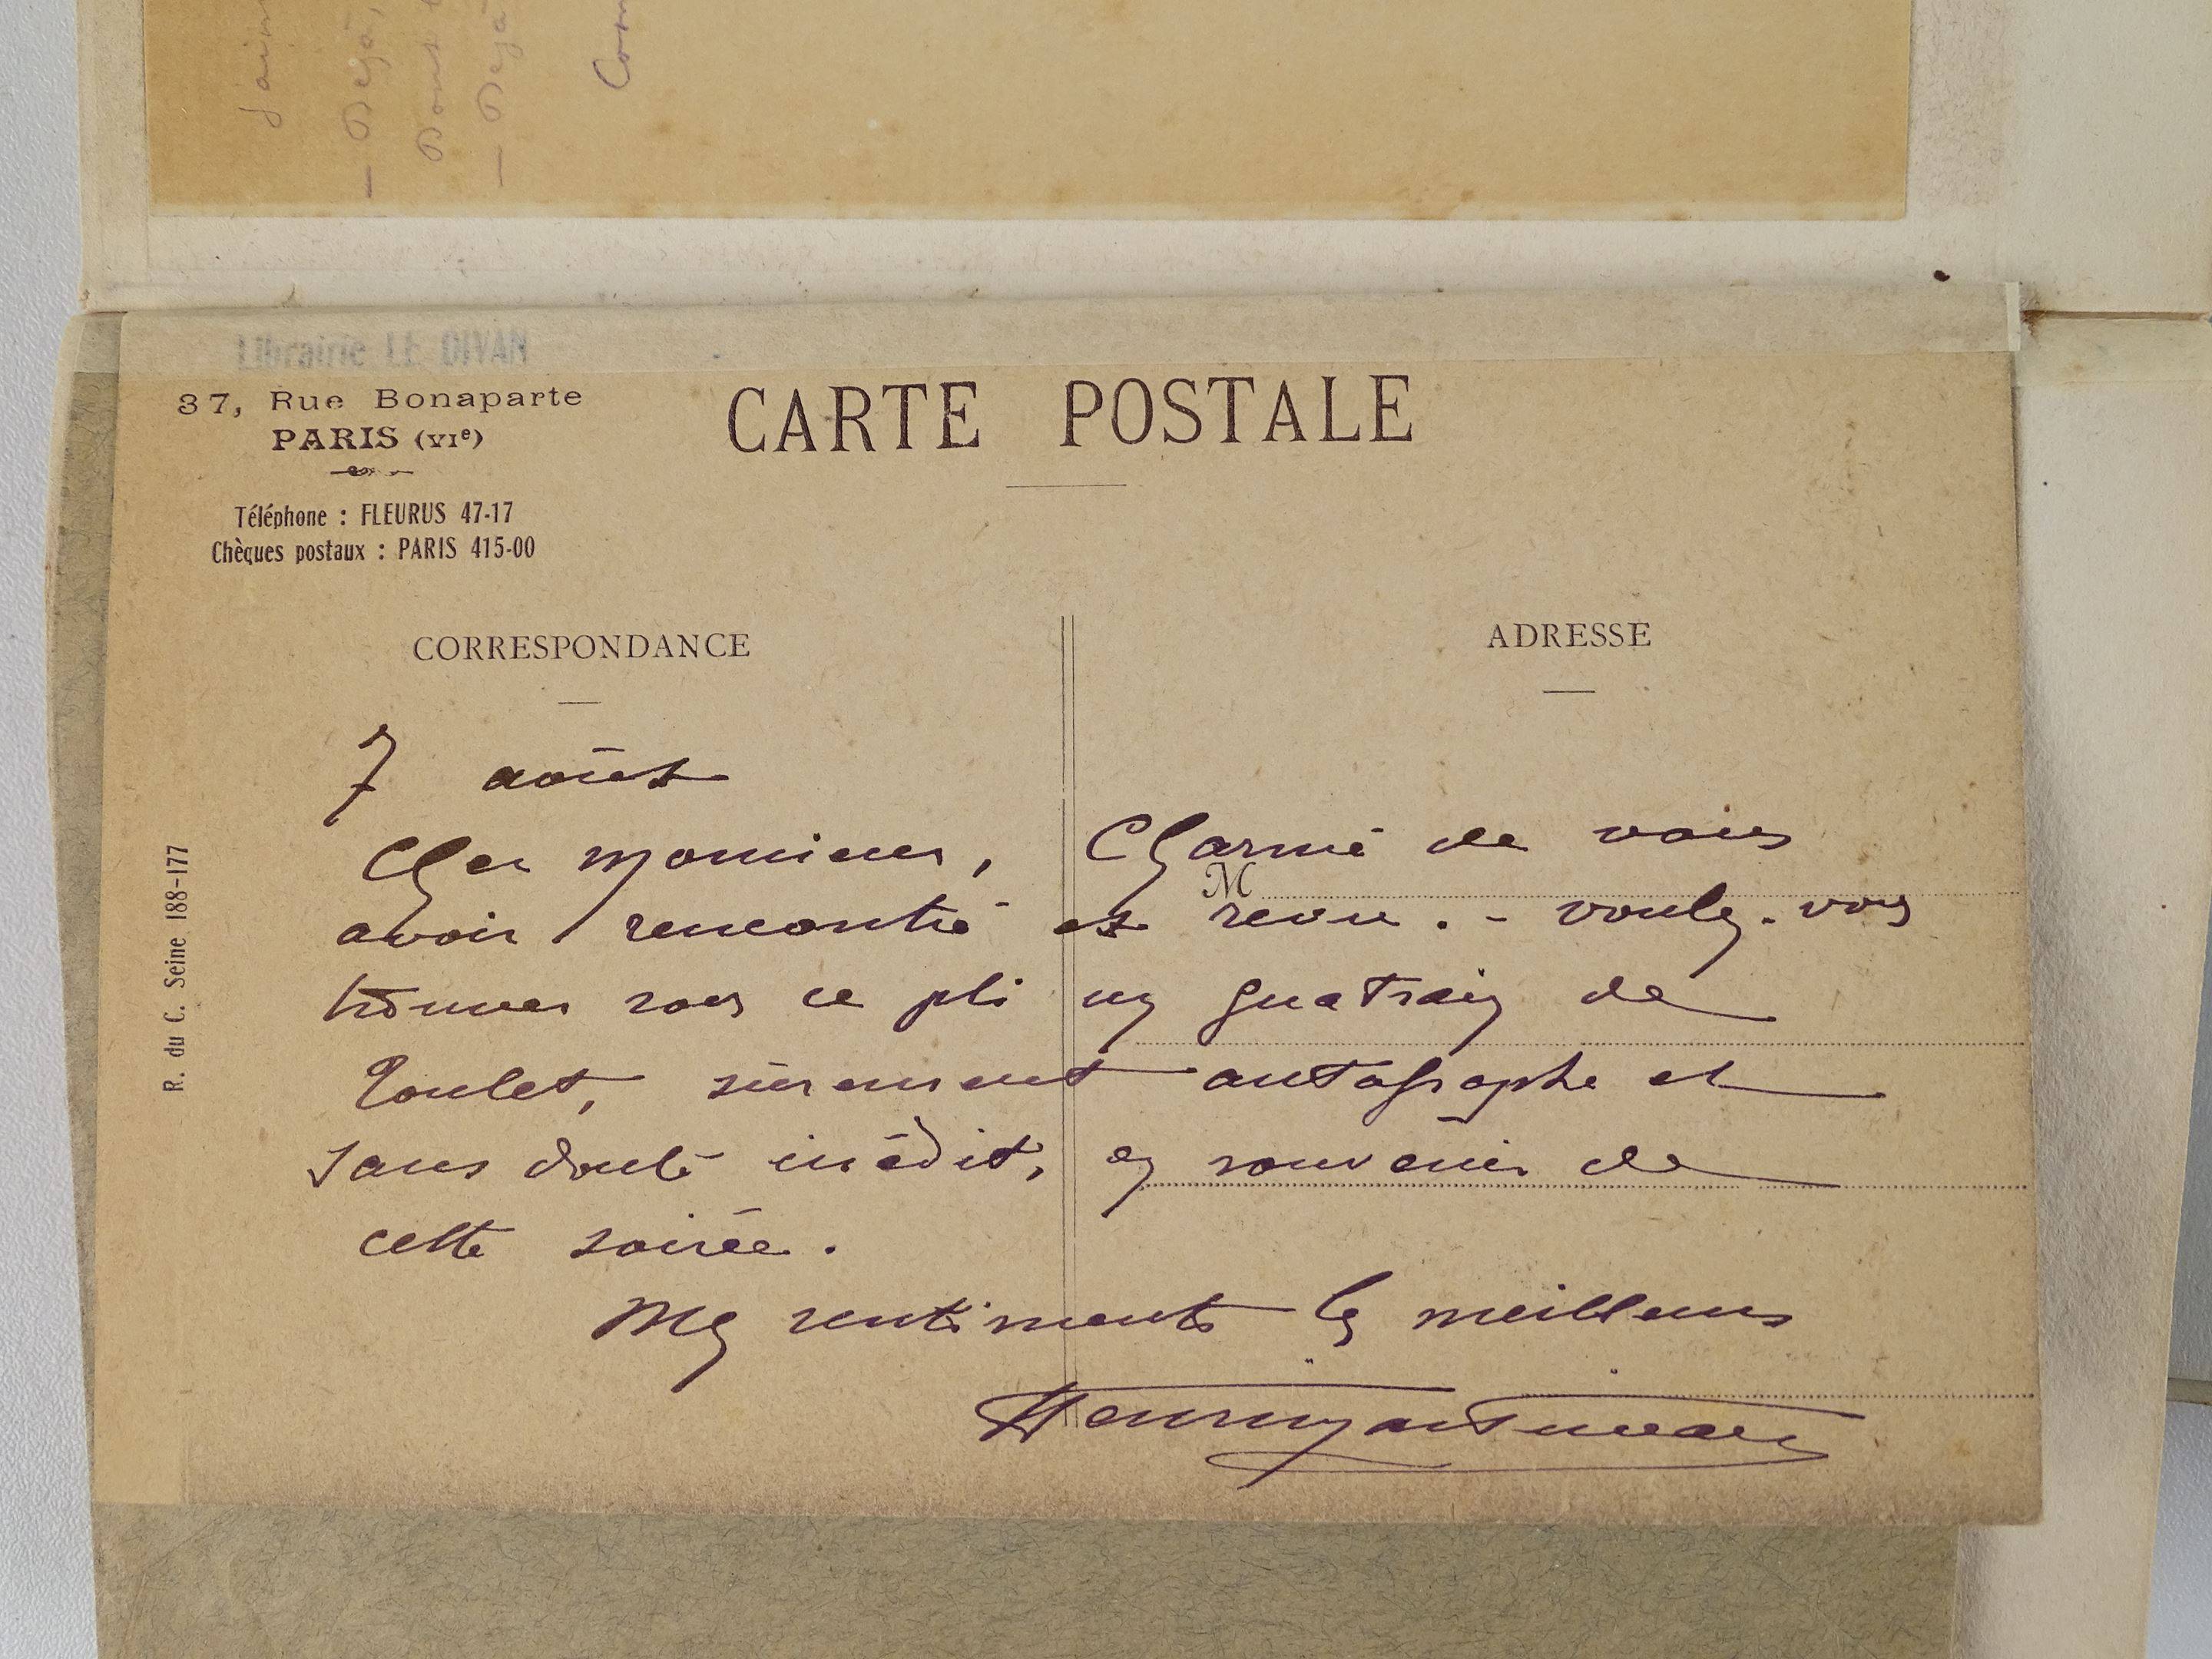 Jaim
— Déjà,
Dont
— Déjà
Com
Librairie LE DIVAN
37, Rue Bonaparte
PARIS (VIe)
Téléphone : FLEURUS 47-17
Chèques postaux : PARIS 415-00
CARTE POSTALE
CORRESPONDANCE
ADRESSE
M
R. du C. Seine 188-177
7 août
Cher monsieur, Charmé de vous
avoir rencontré et revu. - voulez-vous
trouver sous ce pli un quatrain de
Toulet, sûrement autographe et
sans doute inédit, en souvenir de
cette soirée.
Mes sentiments les meilleurs
Henri Martineau